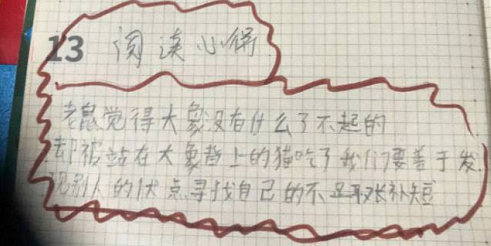 13 阅读心得
老鼠觉得大象没有什么了不起的
却被站在大象背上的猫吃了我们要善于发
现别人的优点寻找自己的不足取长补短